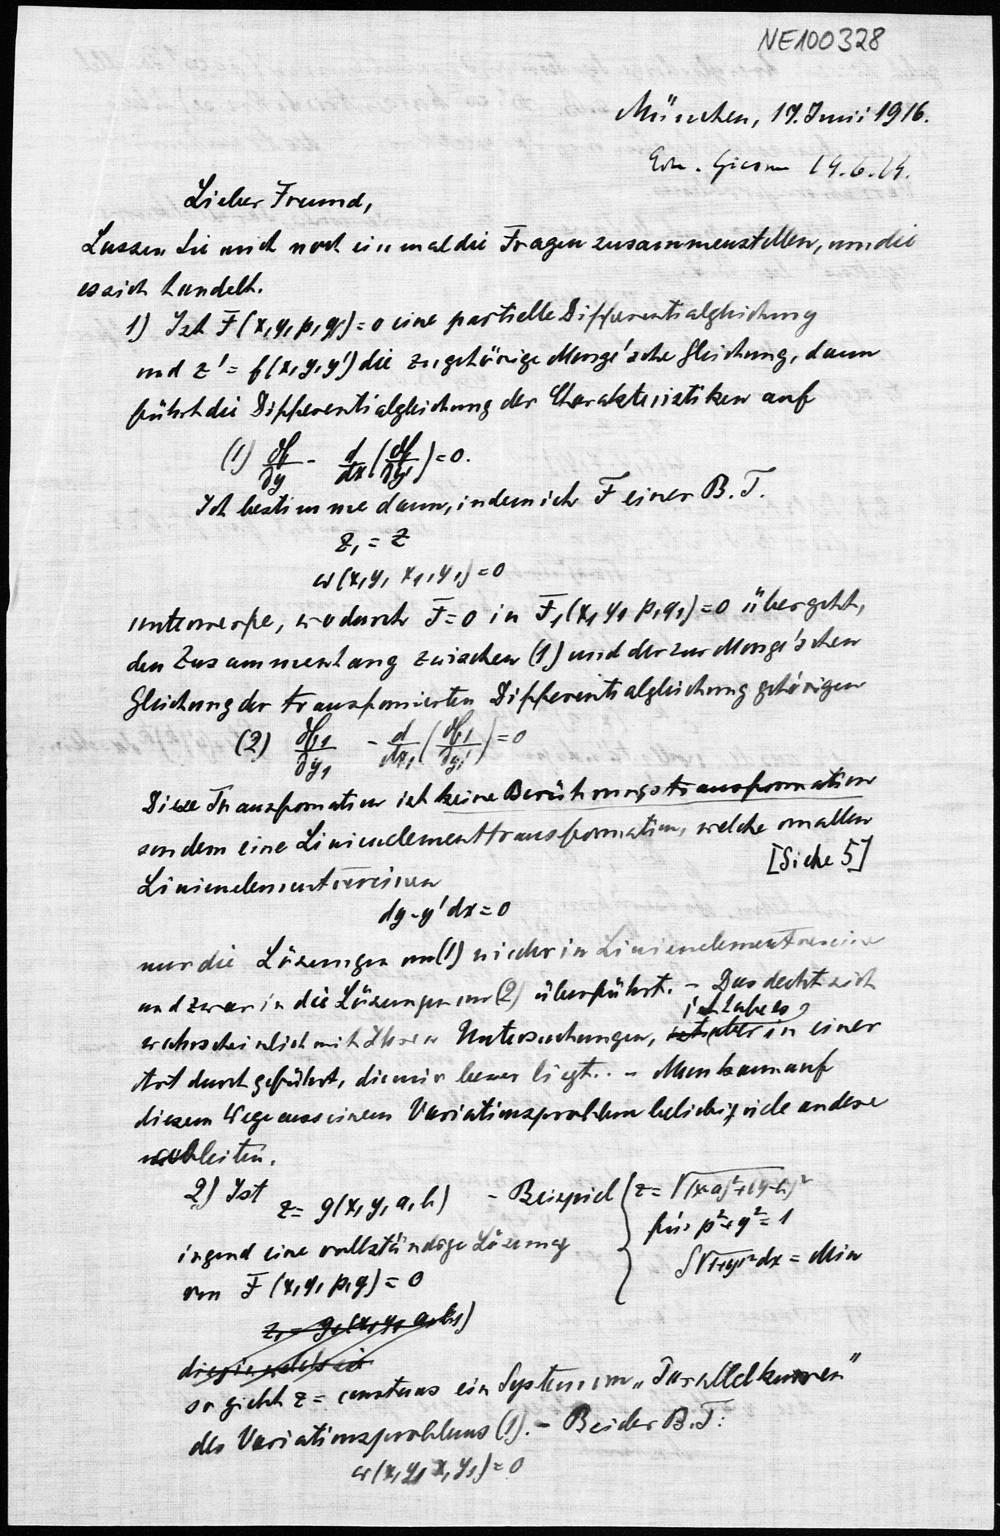 NE100328
München, 17. Juni 1916.
19.6.
Lieber Freund,
Lassen Sie mich noch einmal die Fragen zusammenstellen, um die
es sich handelt.
1) Ist F(x,y,p,q) = 0 eine partielle Differentialgleichung
und z' = f(x,y,y') die zugehörige Monge'sche Gleichung, dann
führt die Differentialgleichung der Charakteristiken auf
(1) ∂f/∂y - d/dx (∂f/∂y') = 0.
Ich bestimme dann, indem ich F einer B.T.
z₁ = z
ω(x,y, x₁,y₁) = 0
unterwerfe, wodurch F = 0 in F₁(x₁ y₁ p₁ q₁) = 0 übergeht,
den Zusammenhang zwischen (1) und der zur Monge'schen
Gleichung der transformierten Differentialgleichung gehörigen
(2) ∂f₁/∂y₁ - d/dx₁ (∂f₁/∂y₁') = 0
Diese Transformation ist keine Berührungstransformation
sondern eine Linienelementtransformation, welche von allen
[Siehe 5]
Linienelementvereinen
dy - y'dx = 0
nur die Lösungen von (1) wieder in Linienelementvereine
und zwar in die Lösungen von (2) überführt. - Das deckt sich
ich habe es
wahrscheinlich mit Ihren Untersuchungen, in einer
Art durchgeführt, die mir besser liegt. - Man kann auf
diesem Wege aus einem Variationsproblem beliebig viele andere
ableiten.
2) Ist z = g(x,y,a,b) - Beispiel z = √(x-a)²+(y-b)²
für p²+q² = 1
irgend eine vollständige Lösung ∫√1+y'² dx = Min
von F(x,y,p,q) = 0
z₁ = g₁(x₁ y₁ a₁ b₁)
so giebt z = constans ein System von „Parallelkurven“
des Variationsproblems (1). - Bei der B.T.:
ω(x,y, x₁ y₁) = 0